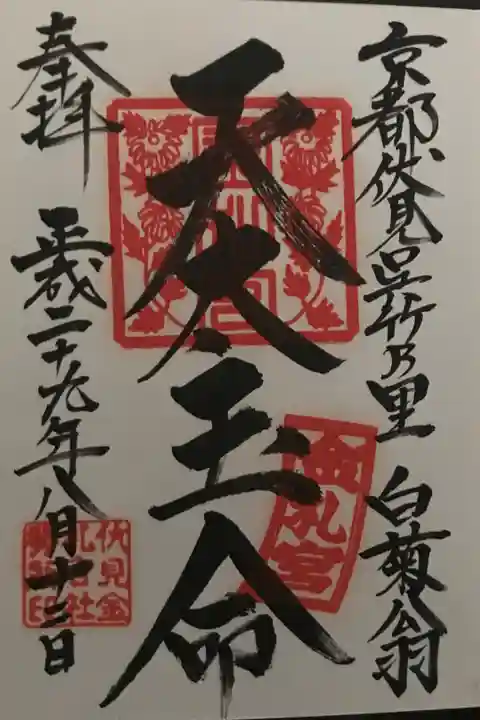 京都伏見呉竹乃里 白菊翁
天太玉命
金札宮
奉拝
平成二十九年八月十三日
伏見金
札宮社
務所印